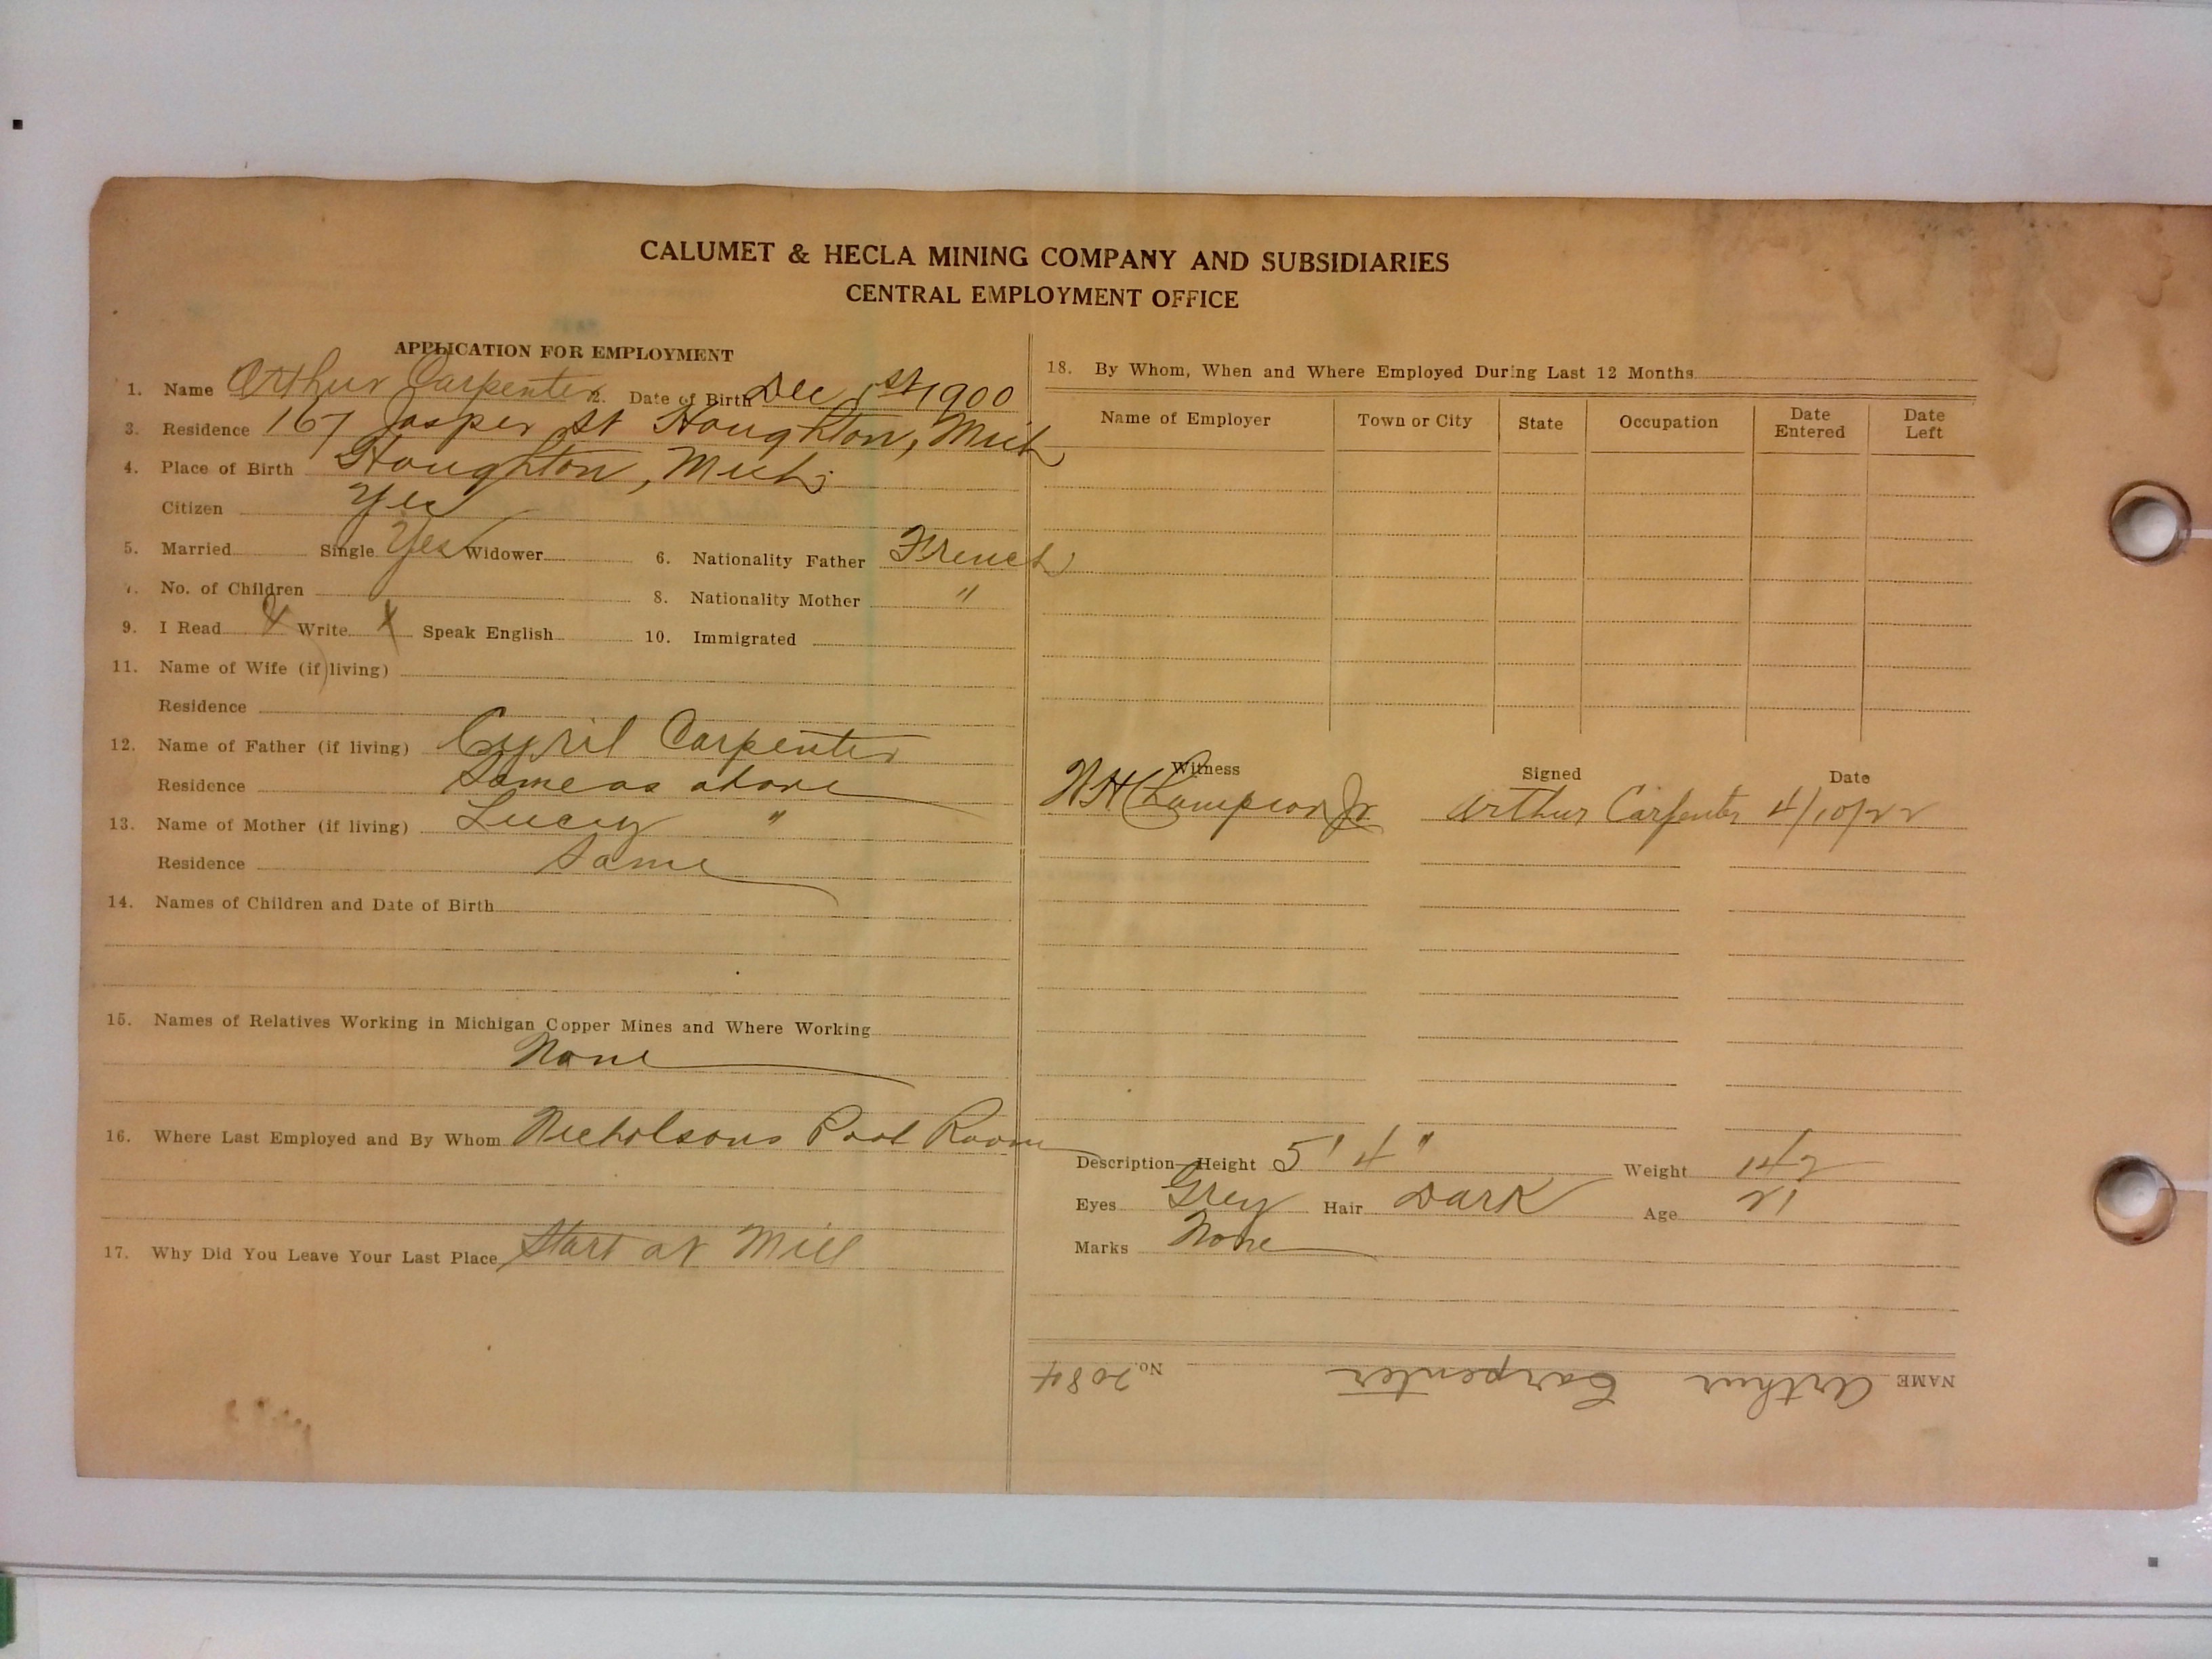 CALUMET & HECLA MINING COMPANY AND SUBSIDIARIES
CENTRAL EMPLOYMENT OFFICE
APPLICATION FOR EMPLOYMENT
1. Name Arthur Carpenter 2. Date of Birth Dec 1st 1900
3. Residence 167 Jasper St Houghton, Mich
4. Place of Birth Houghton, Mich
Citizen Yes
5. Married Single Yes Widower 6. Nationality Father French
7. No. of Children 8. Nationality Mother "
9. I Read X Write X Speak English 10. Immigrated
11. Name of Wife (if living)
Residence
12. Name of Father (if living) Cyril Carpenter
Residence Same as above
13. Name of Mother (if living) Lucy "
Residence Same
14. Names of Children and Date of Birth
15. Names of Relatives Working in Michigan Copper Mines and Where Working
None
16. Where Last Employed and By Whom Nicholsons Pool Room
17. Why Did You Leave Your Last Place Start at Mill
18. By Whom, When and Where Employed During Last 12 Months
Name of Employer Town or City State Occupation Date Entered Date Left
Witness Signed Date
Jr. Arthur Carpenter 4/10/22
Description Height 5' 4" Weight 142
Eyes Grey Hair Dark Age 21
Marks None
NAME Arthur Carpenter No. 2084